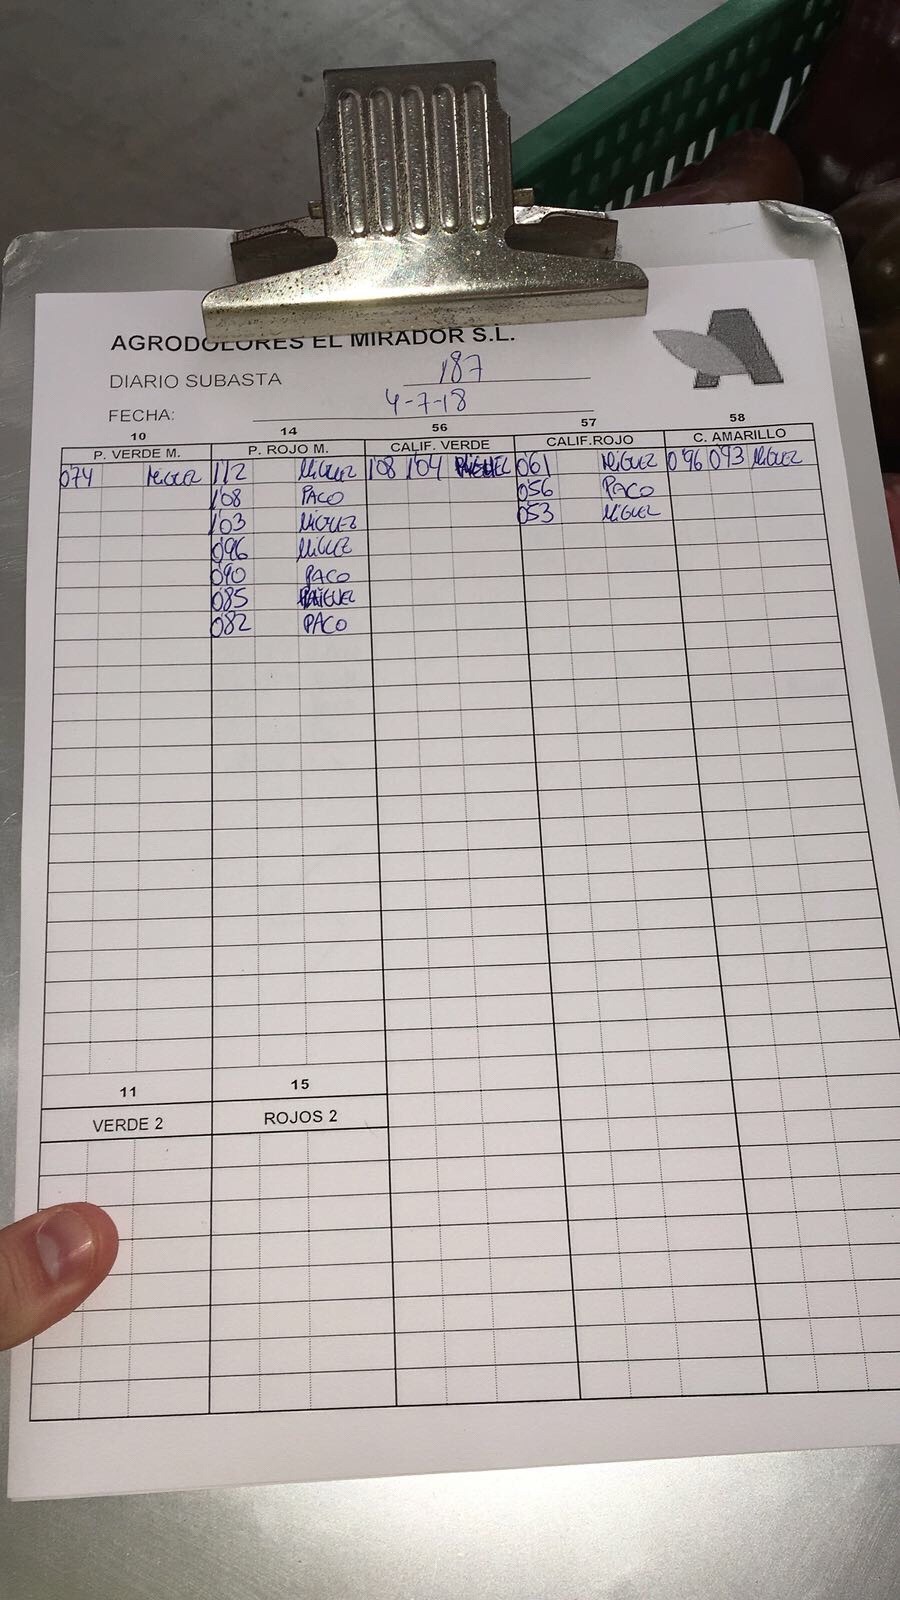 AGRODOLORES EL MIRADOR S.L.
DIARIO SUBASTA 187
FECHA: 4-7-18
10 14 56 57 58
P. VERDE M. P. ROJO M. CALIF. VERDE CALIF.ROJO C. AMARILLO
0'74 MIGUEL 1'12 MIGUEL 1'08 1'04 MIGUEL 0'61 MIGUEL 0'96 0'93 MIGUEL
1'08 PACO 0'56 PACO
1'03 MIGUEL 0'53 MIGUEL
0'96 MIGUEL
0'90 PACO
0'85 MIGUEL
0'82 PACO
11 15
VERDE 2 ROJOS 2